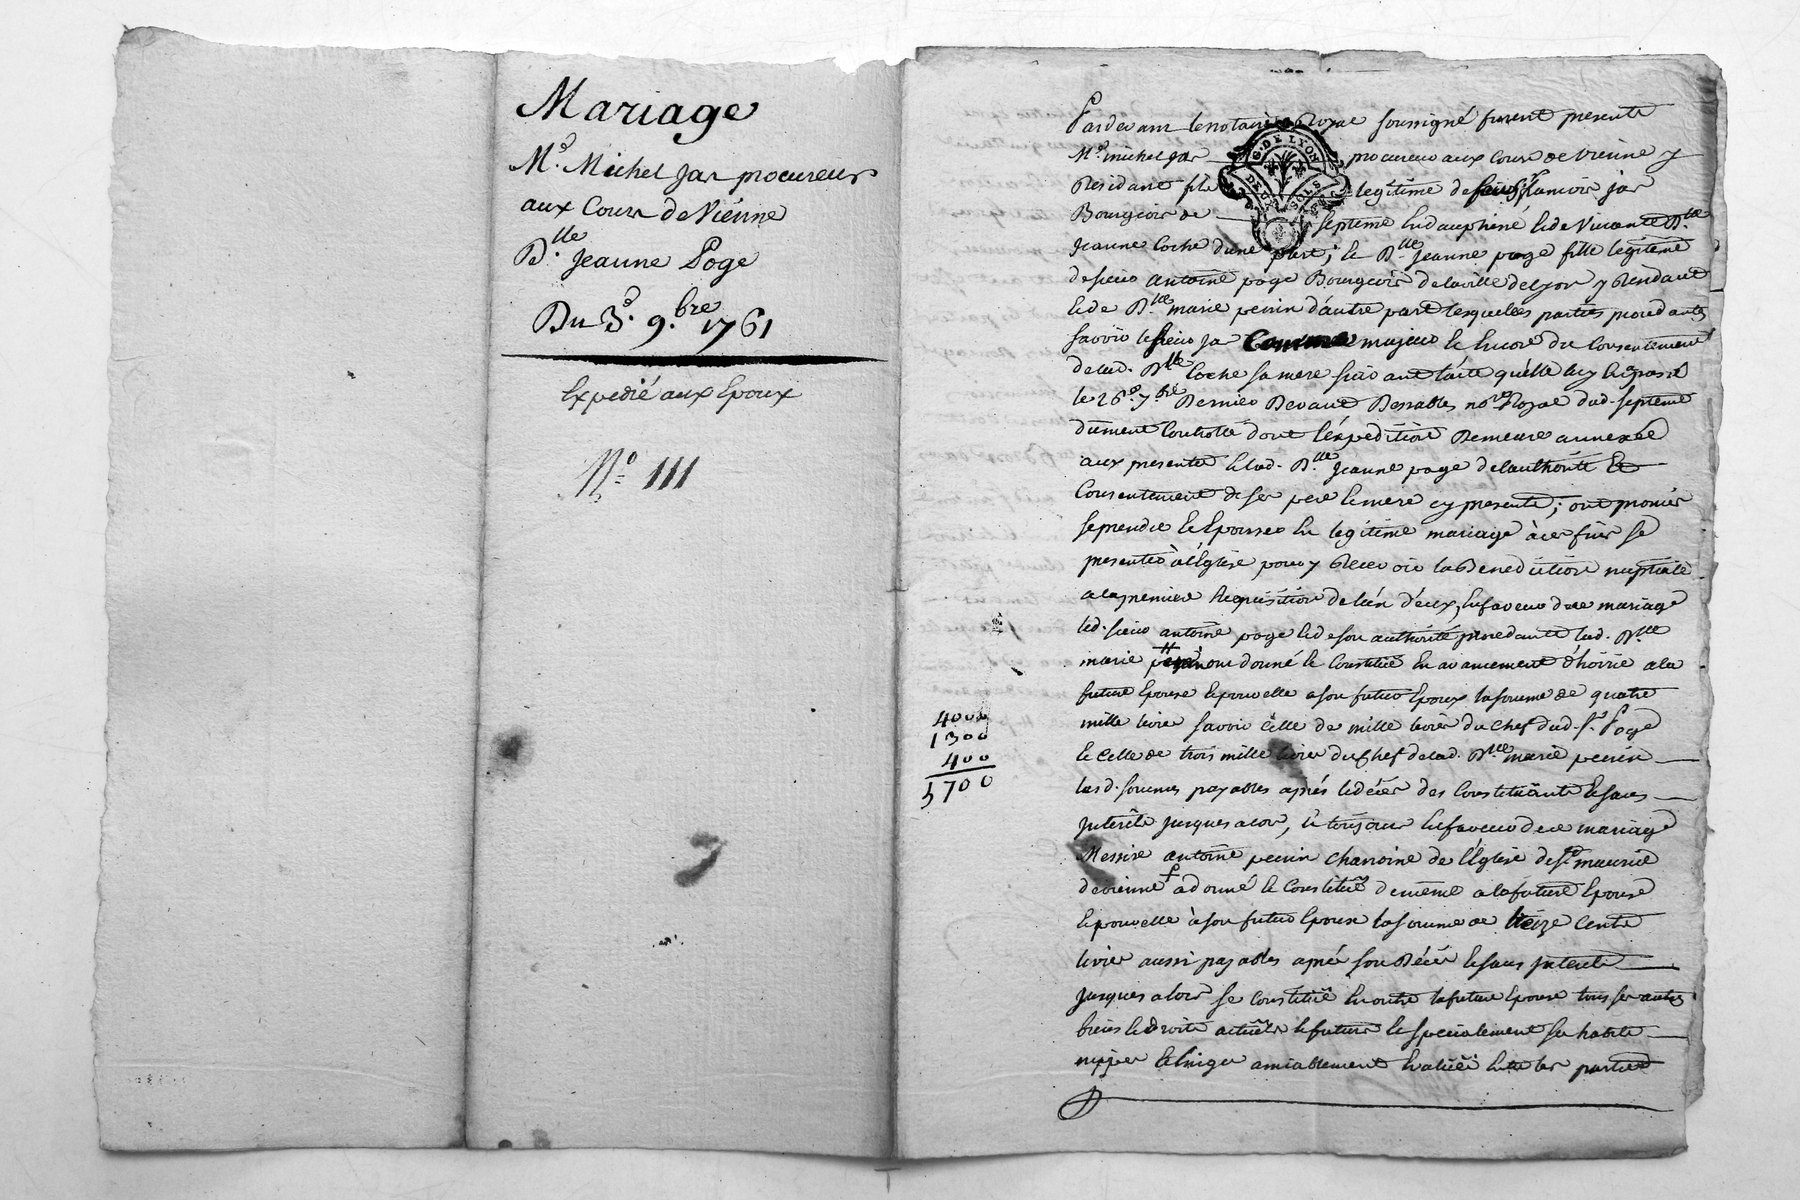 Mariage
Me. Michel Jar procureur
aux Cours de Viénne
Dlle. Jeanne Poge
Du 3e. 9.bre 1761
Expedié aux Epoux
No. 111
Pardevant le notaire Royal soussigné furent presents
Me. michel Jar procureur aux Cours de vienne y
Residant fils legitime de françois jar
Bourgeois de septeme En dauphiné & de vivante Dlle
Jeanne Coche dune part; & Dlle Jeanne poge fille legitime
de sieur antoine poge Bourgeois de la ville de lyon y Residant
& de Dlle marie perrin d'autre part lesquelles parties procedants
savoir le sieur Jar Comme majeur & Encore du Consentement
de lad. Dlle Coche sa mere suivant l'acte quelle luy En a passé
le 26e. 7.bre Dernier Devant Desrables nore Royal dud. septeme
düement Controllé dont l'expedition Demeure annexée
aux presentes & lad. Dlle Jeanne poge de l'authorité &
Consentement de ses pere & mere cy presents; ont promis
se prendre & Epouser En legitime mariage à ces fins se
presenter à l'Eglise pour y Recevoir la Benediction nuptiale
a la premiere Requisition de l'un d'eux, En faveur dece mariage
led. sieur antoine poge & de son authorité procedante lad. Dlle
marie perrin ont donné & Constitué En avancement d'hoirie a la
future Epouse & pour elle a son futur Epoux la somme de quatre
mille livres savoir Celle de mille livres du Chef dud. Sr. Poge
& Celle de trois mille livres du Chef de lad. Dlle marie perrin
lesd. sommes payables aprés le décés des Constituants & sans
Jnterets jusques alors, & toujours En faveur dece mariage
Messire antoine perrin chanoine de l'Eglise de St maurice
de vienne a donné & Constitué de même a la future Epouse
& pour elle à son futur Epoux la somme de treize Cents
livres aussi payables aprés son Décés & sans Jnterets
Jusques alors se Constitue En outre la future Epouse tous ses autres
biens & droits actuels & futurs & specialement ses habits
nippes & linges amiablement Evalués Entre les parties
4000
1300
400
5700
G. DE LYON
DEUX SOLS